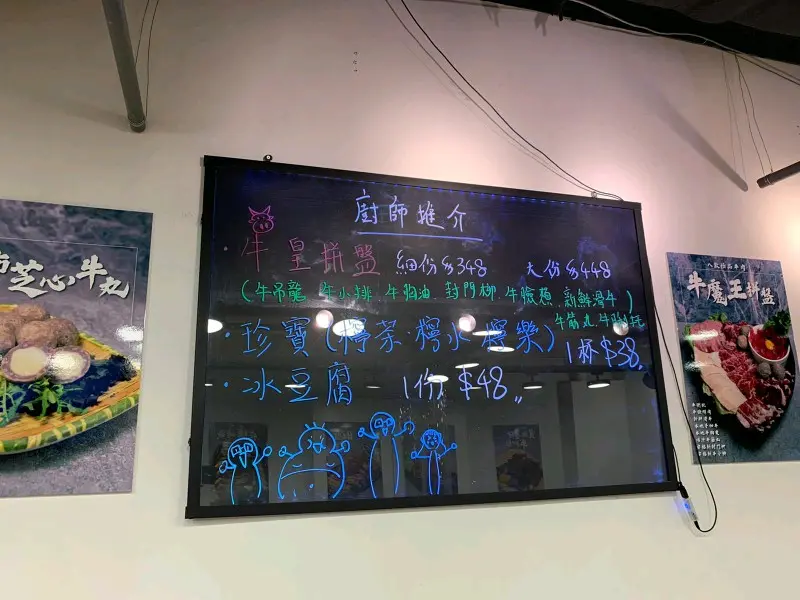 廚師推介
· 牛皇拼盤 細份$348 大份$448
(牛吊龍 牛小排 牛胸油 封門柳 牛臉頰 新鮮滑牛)
牛筋丸
· 珍寶(檸茶 檸水 檸樂) 1杯$38
· 冰豆腐 1份 $48
芝心牛丸
牛魔王拼盤